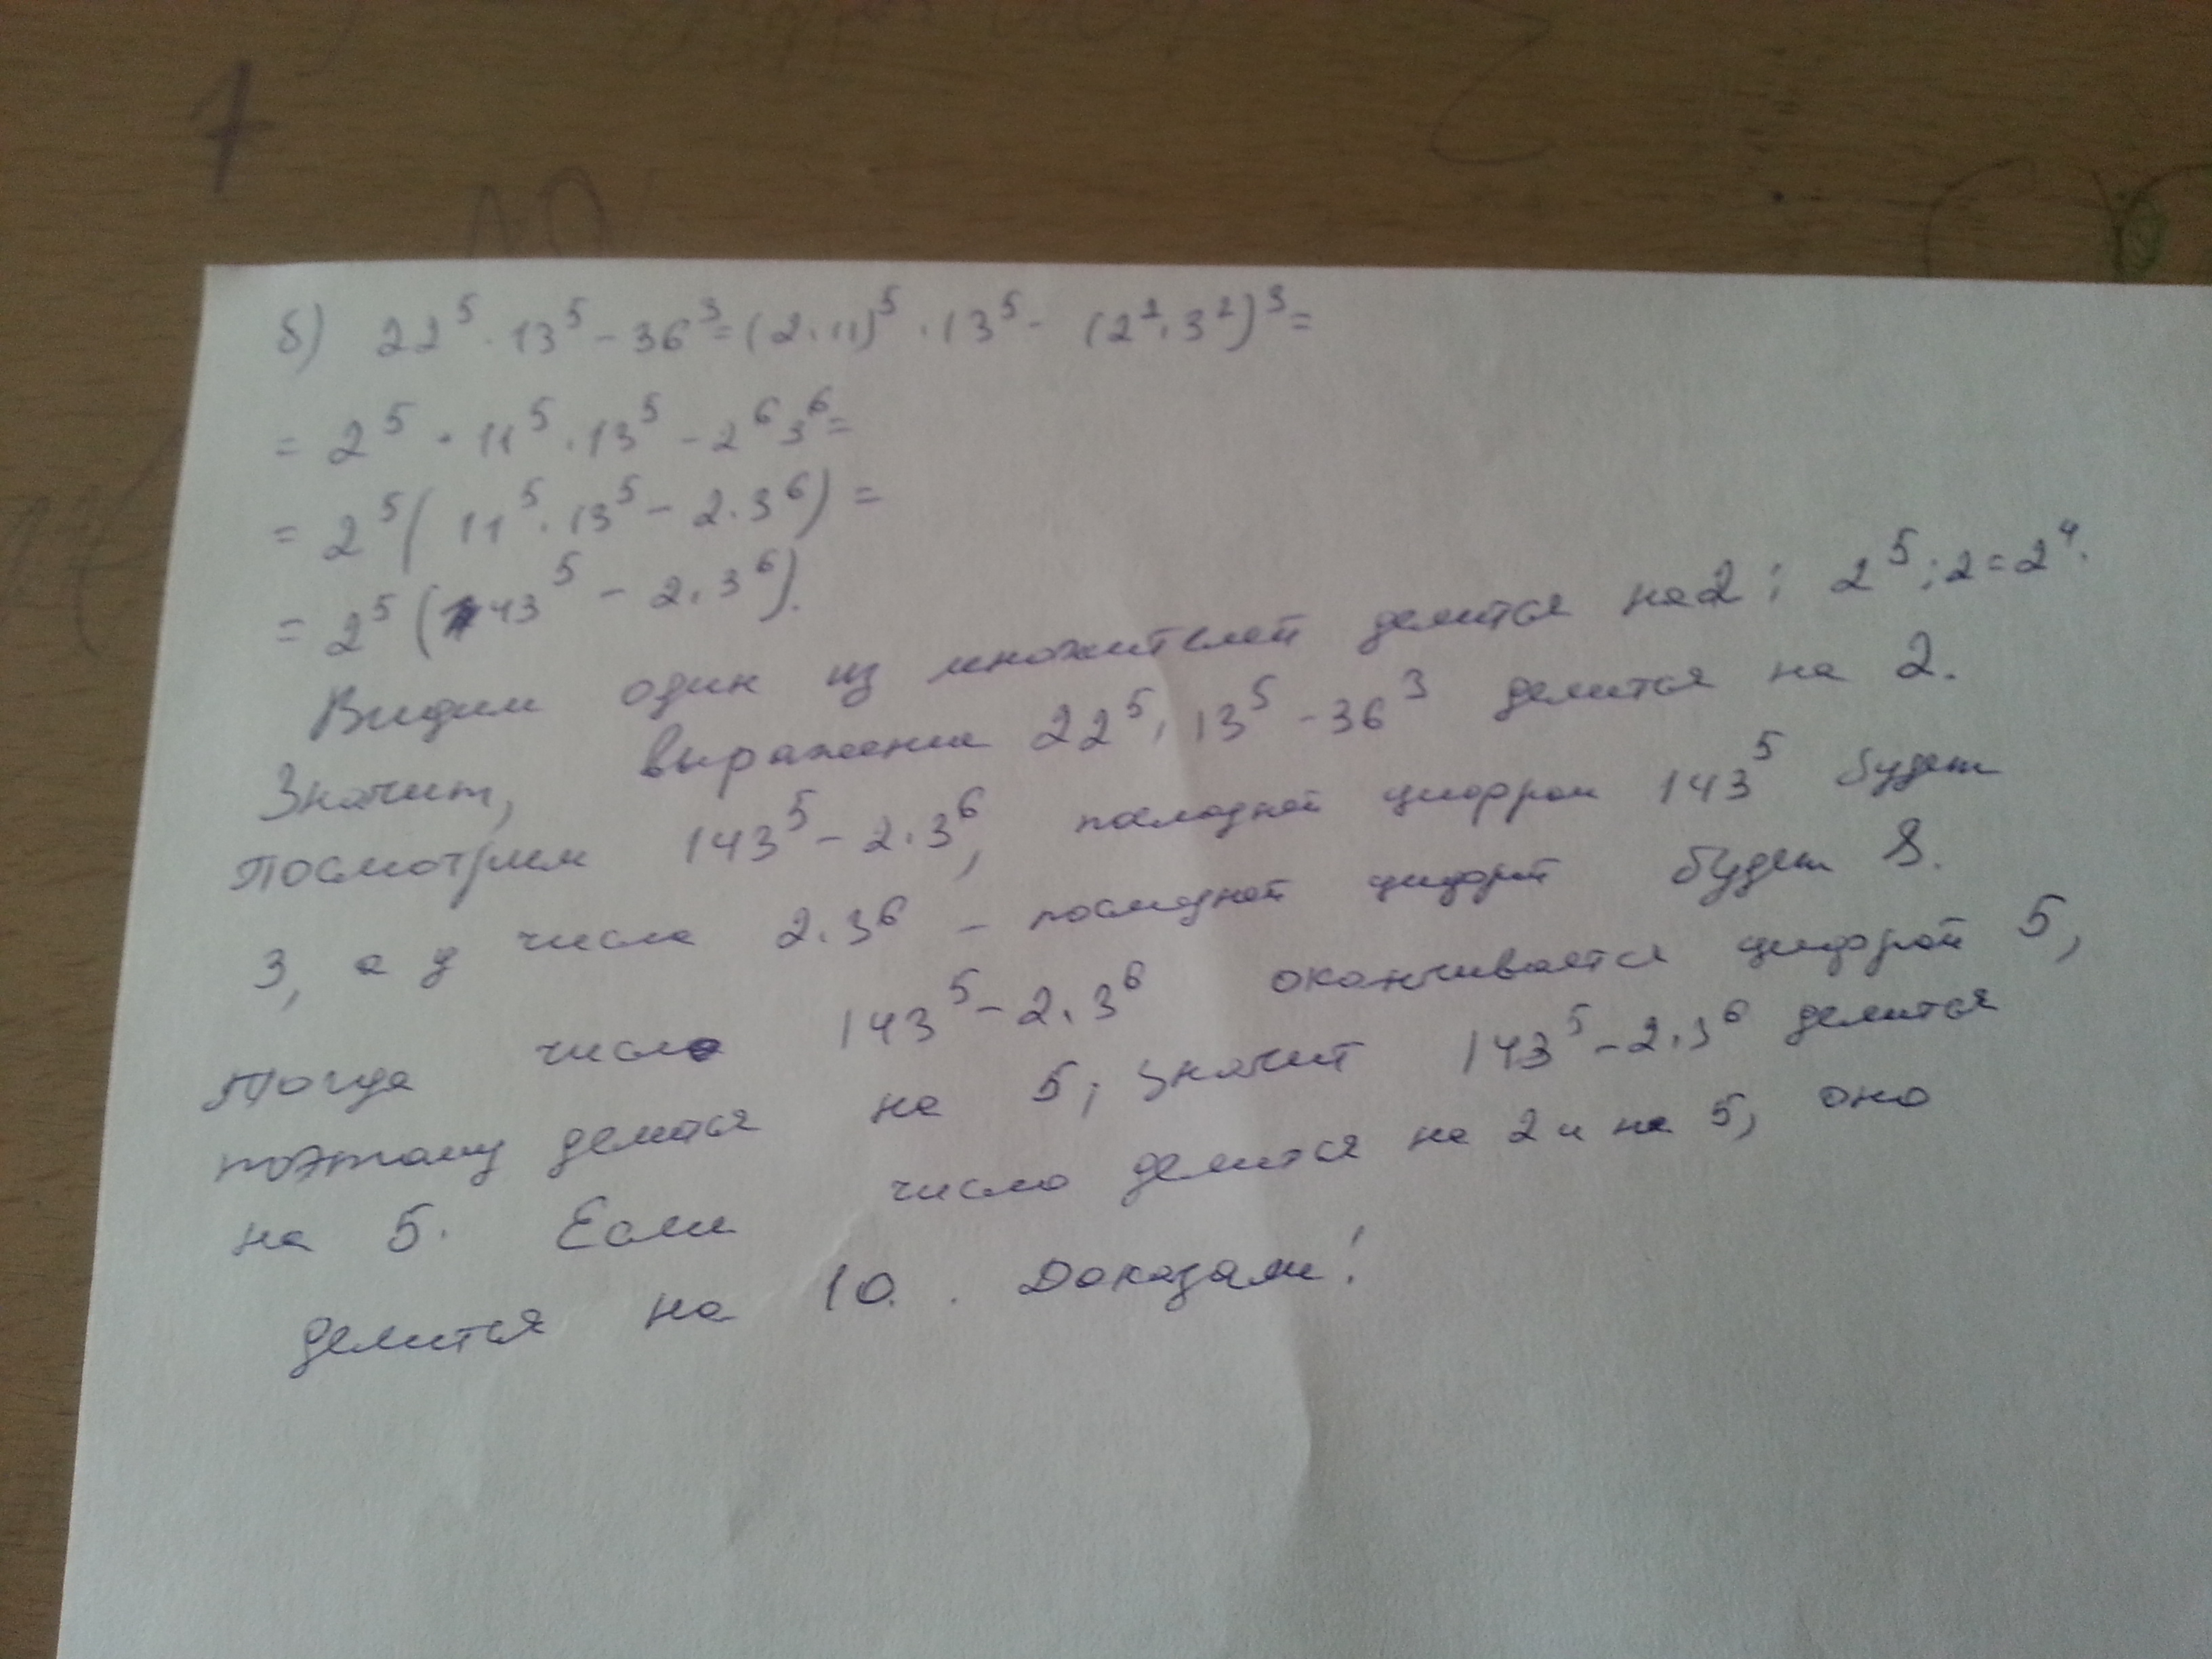 7
б) 22⁵ · 13⁵ - 36³ = (2 · 11)⁵ · 13⁵ - (2² · 3²)³ =
= 2⁵ · 11⁵ · 13⁵ - 2⁶ 3⁶ =
= 2⁵ ( 11⁵ · 13⁵ - 2 · 3⁶ ) =
= 2⁵ (143⁵ - 2 · 3⁶).
Видим один из множителей делится на 2 ; 2⁵ : 2 = 2⁴.
Значит, выражение 22⁵ · 13⁵ - 36³ делится на 2.
Посмотрим 143⁵ - 2 · 3⁶, последней цифрой 143⁵ будет
3, а у числа 2 · 3⁶ - последней цифрой будет 8.
Тогда число 143⁵ - 2 · 3⁶ оканчивается цифрой 5,
поэтому делится на 5; значит 143⁵ - 2 · 3⁶ делится
на 5. Если число делится на 2 и на 5, оно
делится на 10. . Доказали!